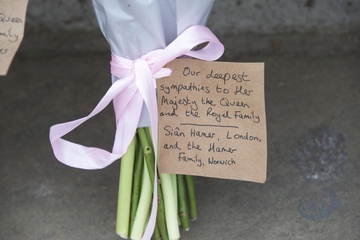 Queen
Family
Our deepest
sympathies to Her
Majesty the Queen
and the Royal Family
Siân Hamer, London,
and the Hamer
Family, Norwich